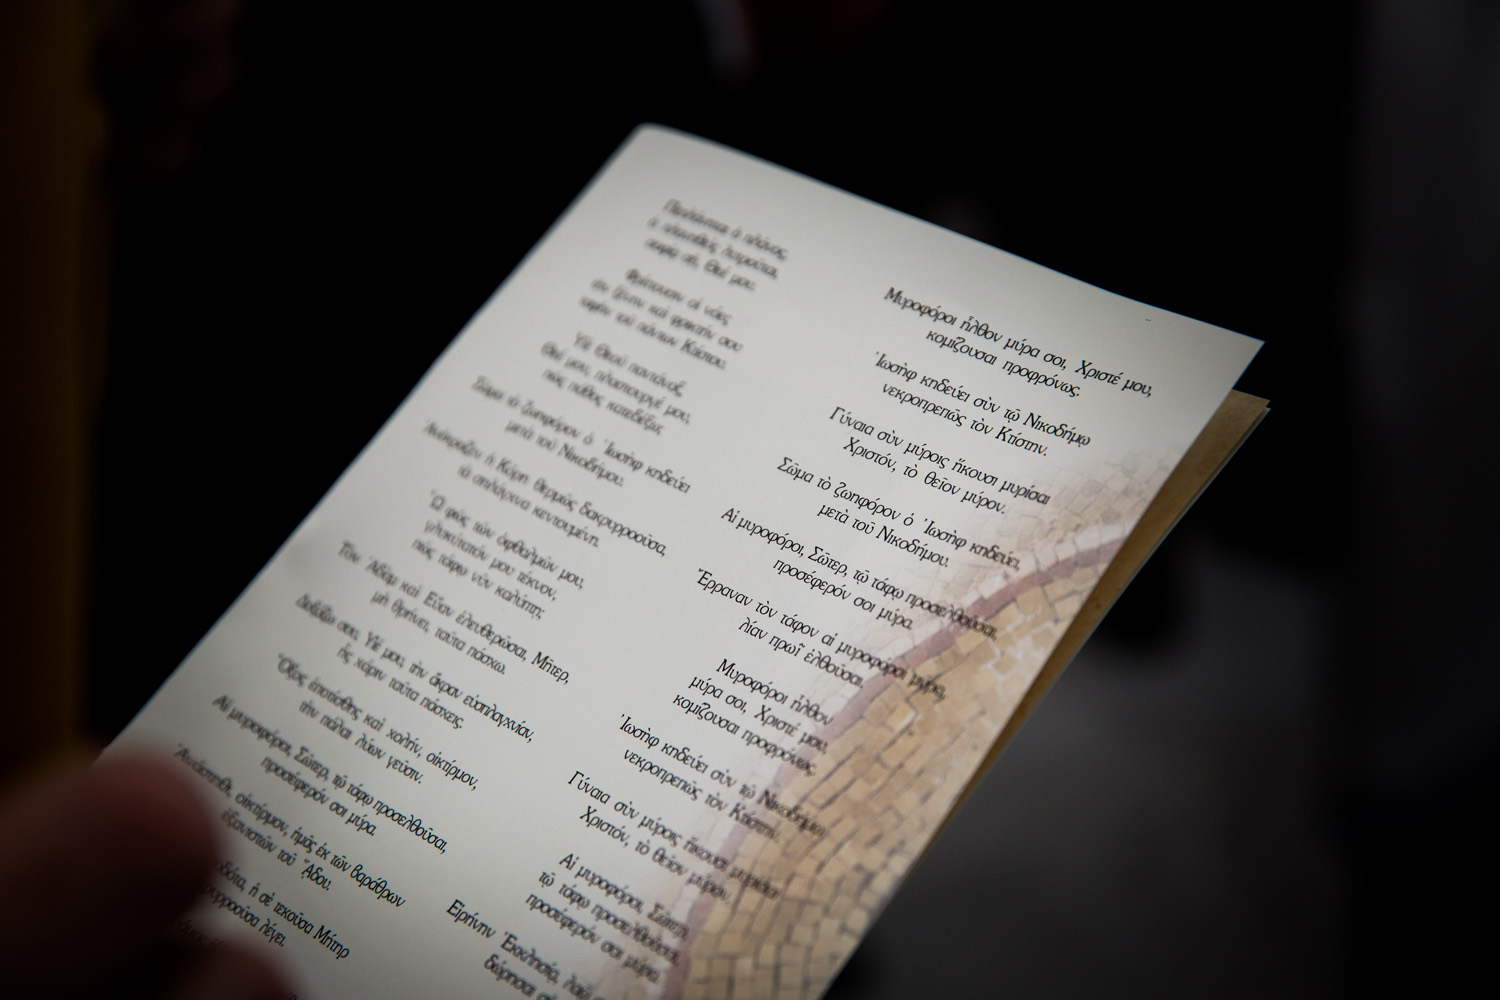 Πεπλάνηται ὁ πλάνος,
ὁ πλανηθεὶς λυτροῦται,
σοφίᾳ σῇ, Θεέ μου.
Φρίττουσιν οἱ νόες
τὴν ξένην καὶ φρικτήν σου
ταφὴν τοῦ πάντων Κτίστου.
Υἱὲ Θεοῦ παντάναξ,
Θεέ μου, πλαστουργέ μου,
πῶς πάθος κατεδέξω;
Σῶμα τὸ ζωηφόρον ὁ Ἰωσὴφ κηδεύει
μετὰ τοῦ Νικοδήμου.
Ἀνέκραζεν ἡ Κόρη θερμῶς δακρυρροοῦσα,
τὰ σπλάγχνα κεντουμένη.
Ὦ φῶς τῶν ὀφθαλμῶν μου,
γλυκύτατόν μου τέκνον,
πῶς τάφῳ νῦν καλύπτῃ;
Τὸν Ἀδὰμ καὶ Εὔαν ἐλευθερῶσαι, Μῆτερ,
μὴ θρήνει, ταῦτα πάσχω.
Δοξάζω σου, Υἱέ μου, τὴν ἄκραν εὐσπλαγχνίαν,
ἧς χάριν ταῦτα πάσχεις.
Ὄξος ἐποτίσθης καὶ χολήν, οἰκτίρμον,
τὴν πάλαι λύων γεῦσιν.
Αἱ μυροφόροι, Σῶτερ, τῷ τάφῳ προσελθοῦσαι,
προσέφερόν σοι μύρα.
Ἀνάστηθι, οἰκτίρμον, ἡμᾶς ἐκ τῶν βαράθρων
ἐξανιστῶν τοῦ ᾍδου.
ἡ σὲ τεκοῦσα Μήτηρ
λέγει.
Μυροφόροι ἦλθον μύρα σοι, Χριστέ μου,
κομίζουσαι προφρόνως.
Ἰωσὴφ κηδεύει σὺν τῷ Νικοδήμῳ
νεκροπρεπῶς τὸν Κτίστην.
Γύναια σὺν μύροις ἥκουσι μυρίσαι
Χριστόν, τὸ θεῖον μύρον.
Σῶμα τὸ ζωηφόρον ὁ Ἰωσὴφ κηδεύει,
μετὰ τοῦ Νικοδήμου.
Αἱ μυροφόροι, Σῶτερ, τῷ τάφῳ προσελθοῦσαι,
προσέφερόν σοι μύρα.
Ἔρραναν τὸν τάφον αἱ μυροφόροι μύρα,
λίαν πρωῒ ἐλθοῦσαι.
Μυροφόροι ἦλθον
μύρα σοι, Χριστέ μου,
κομίζουσαι προφρόνως.
Ἰωσὴφ κηδεύει σὺν τῷ Νικοδήμῳ
νεκροπρεπῶς τὸν Κτίστην.
Γύναια σὺν μύροις ἥκουσι μυρίσαι
Χριστόν, τὸ θεῖον μύρον.
Αἱ μυροφόροι, Σῶτερ,
τῷ τάφῳ προσελθοῦσαι,
προσέφερόν σοι μύρα.
Εἰρήνην Ἐκκλησίᾳ, λαῷ
δώρησαι